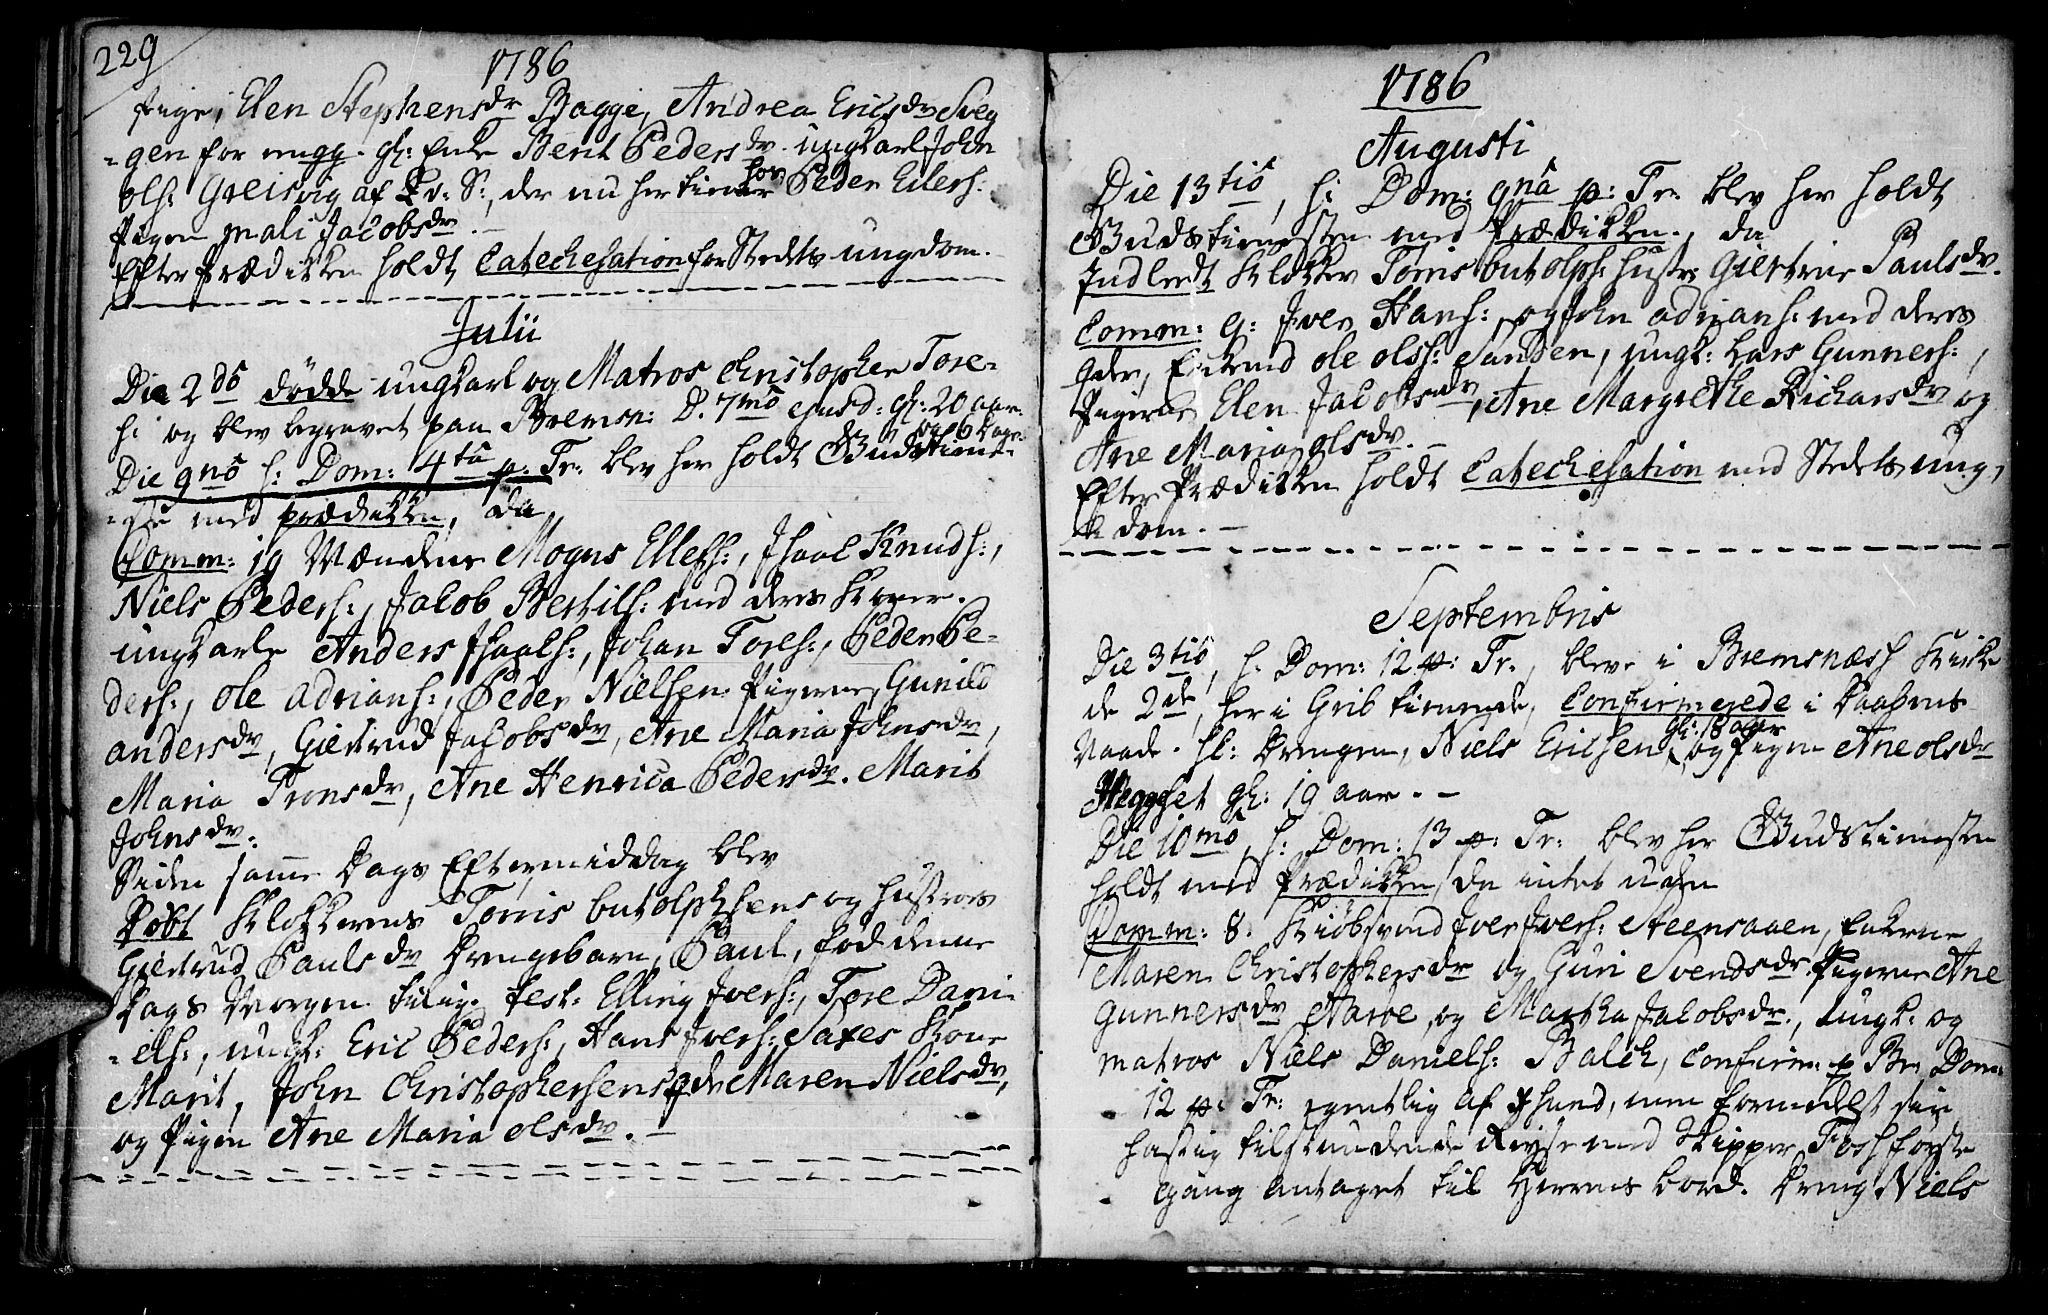 229
1786
Pige, Elen Stephensdr Bagge, Andrea Ericsdr Sveg
=gen for ungg. gl: Enke Berit Pedersdr. ungkarl John
Ols: Greisvig af Qv: S:, der nu her tiener hos Peder Eilers:
Pigen Mali Jacobsdr. -
Efter Prædikken holdt Catechesation for Stedets ungdom. -
Julii
Die 2do dödde ungkarl og Matros Christopher Tore-
s: og blev begravet paa Bremsn: D. 7mo ejusd: gl: 20 aar
og 6 Dage.
Die 9no s: Dom: 4ta p. Tr: blev her holdt Gudstiene-
=ste med prædikken, da
Comm: 19 Mændene Mogns Ellefs:, Isaac Knuds:,
Niels Peders:, Jacob Bertils: med deres Koner.
ungkarle Anders Isaals:, Johan Tores:, Peder Pe-
ders:, Ole Adrians:, Peder Nielsen. Pigerne, Gunild
Andersdr, Giertrud Jacobsdr, Ane Maria Johnsdr,
Maria Tronsdr, Ane Henrica Pedersdr. Marit
Johnsdr.
Siden samme Dags Eftermiddag blev
Döbt Klokkerens Törris Butolphsens og Hustroes
Giertrud Paulsdr Drengebarn, Paul, föd denne
Dags Morgen tilig. Test: Elling Ivers:, Tore Dani-
=els:, ungk: Eric Peders:, Hans Ivers: Saxes Kone
Marit, John Christophersens qde Maren Nielsdr,
og Pigen Ane Maria Olsdr. -
1786
Augusti
Die 13tio, s: Dom: 9na p: Tr: blev her holdt
Gudstienesten med Prædikken, da
Indledt Klokker Törris Butolphs: Hustr: Giertrue Paulsdr.
Comm: 9: Iver Hans:, og John Adrians: med deres
qder, Enkemd Ole Ols: Sanden, ungk: Lars Gunners:,
Pigerne Elen Jacobsdr, Ane Margrethe Richarsdr og
Ane Maria Olsdr. -
Efter Prædikken holdt Catechesation med Stedets ung,
dom. -
Septembris
Die 3tio, s: Dom: 12 p: Tr:, bleve i Bremsnæss Kirke
de 2de, her i Grib tienende, Confirmerede i Daabens
Naade. sl: Drengen, Niels Ericsen gl: 18 aar, og Pigen Ane Olsdr
Hegget gl: 19 aar. -
Die 10mo, s: Dom: 13 p: Tr: blev her Gudstienesten
holdt med Prædikken, da intet uden
Comm: 8: Kiöbsvend Iver Ivers: Steensaaen, Enkerne
Maren Christophersdr og Guri Svendsdr Pigerne Ane
Gunnersdr Aaroe, og Martha Jacobsdr., ungk: og
matros Niels Daniels: Balch, Confirm: p Br: Dom:
12 p: Tr: egentlig af Ihsund, men formedelst sin
hastig tilstundende Reyse med Skipper Fosh förste
Gang antaget til Herrens bord. Dreng Niels